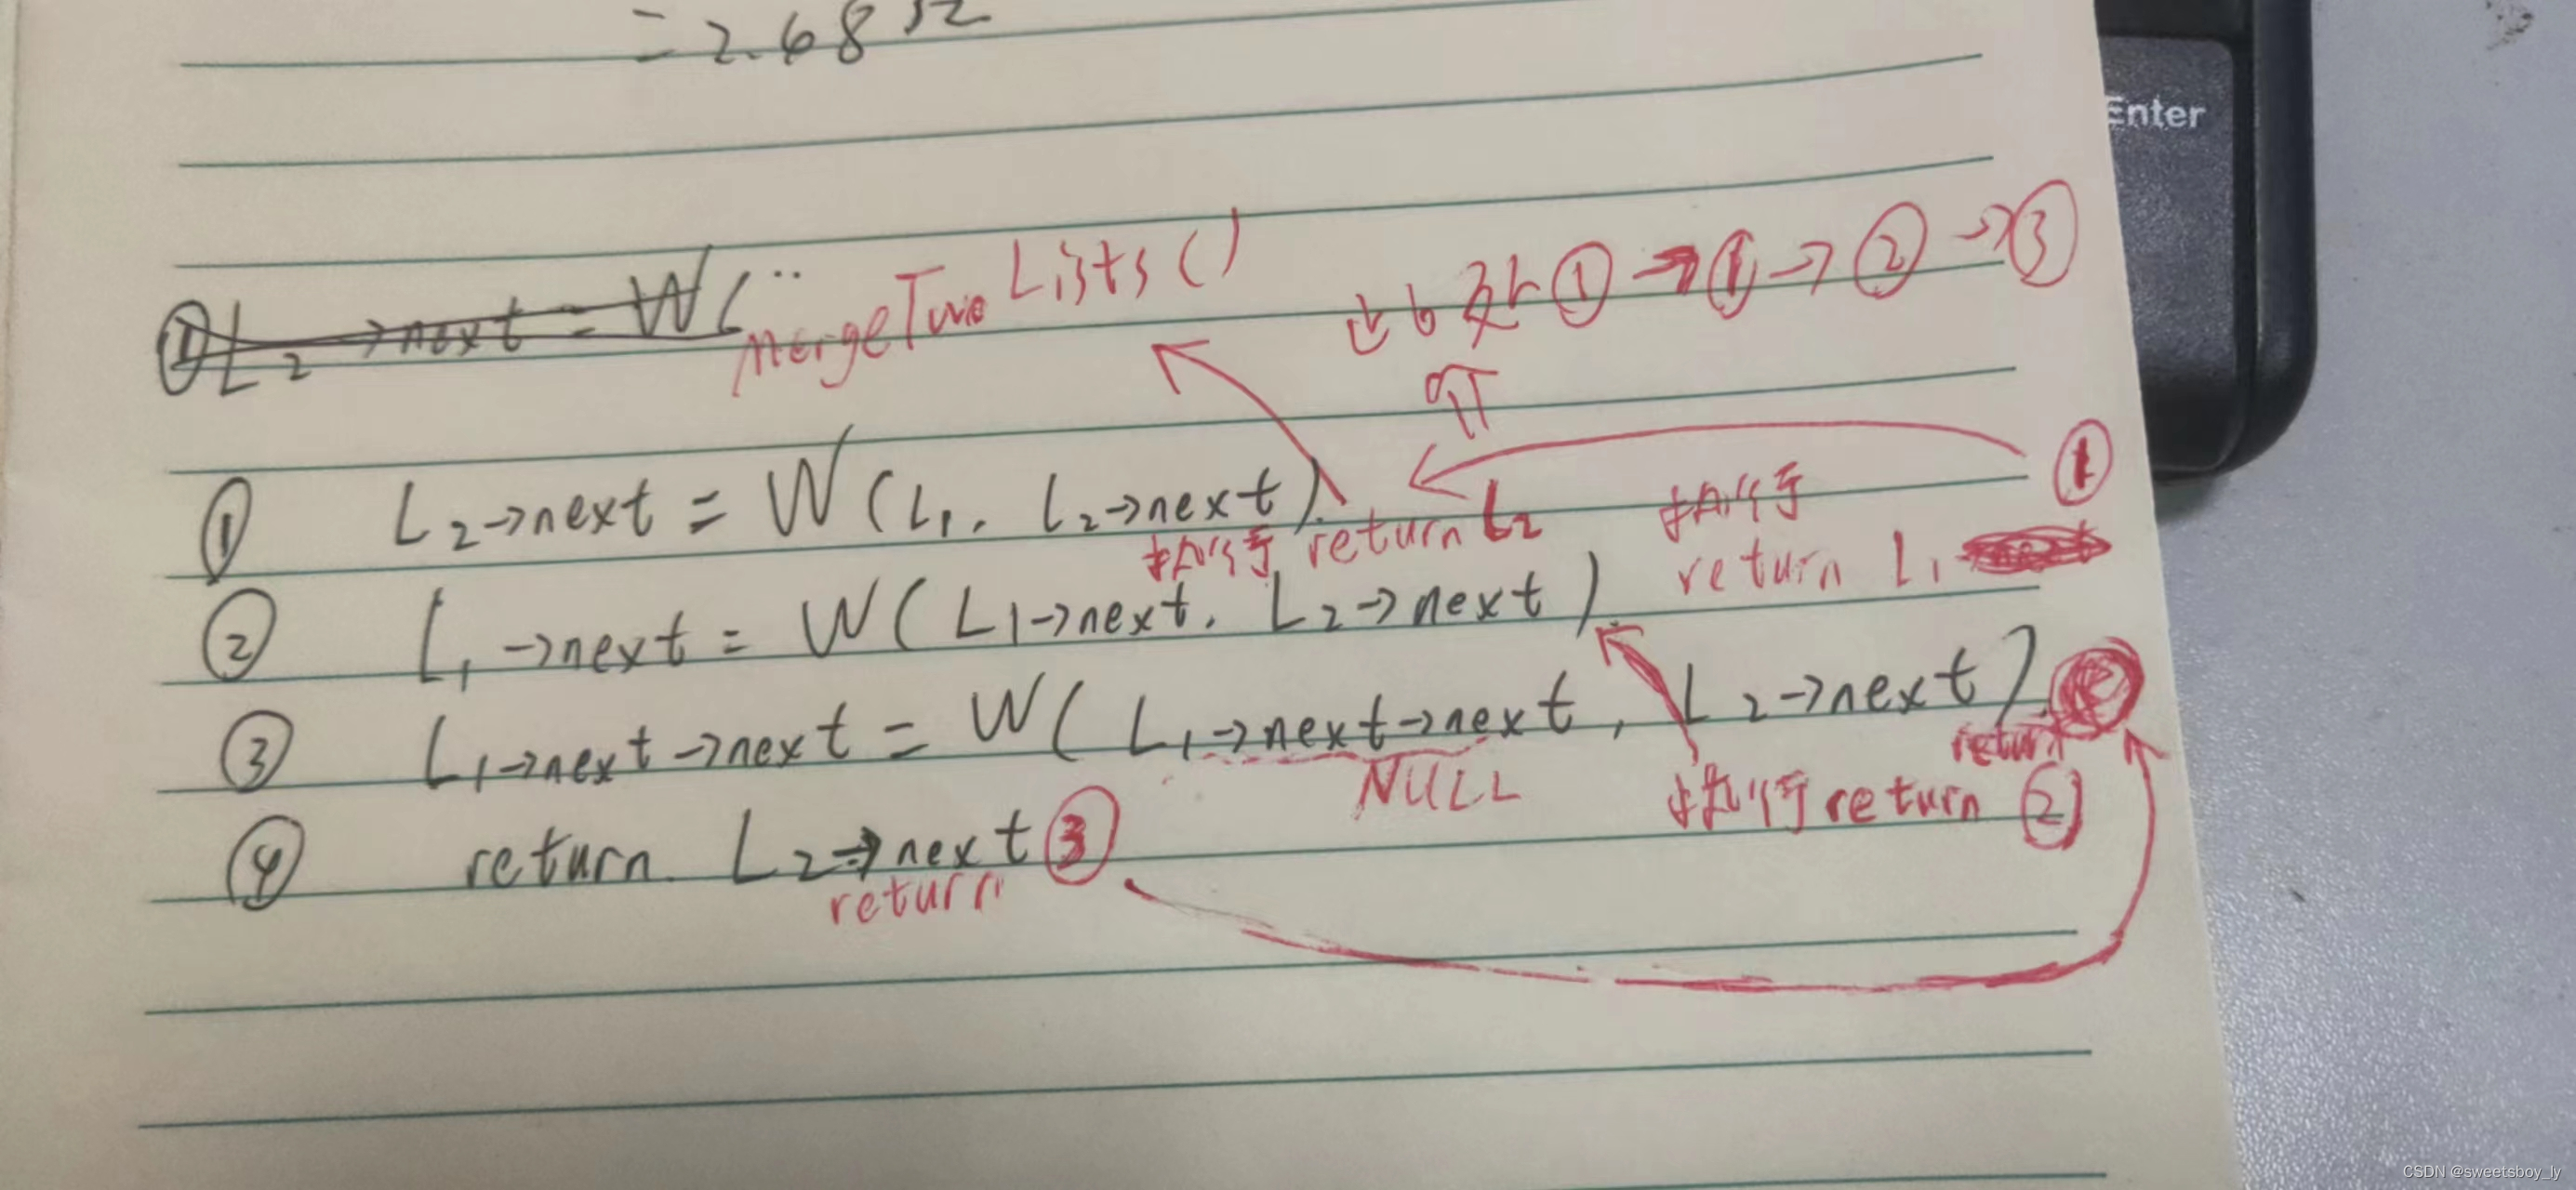 = 2.68 Ω
Enter
① L2->next = W(¨
mergeTwoLists()
①->①->②->③
① L2->next = W(L1, L2->next).
执行 return L2
执行
return L1
①
② L1->next = W(L1->next, L2->next).
③ L1->next->next = W(L1->next->next, L2->next).
return
NULL
执行 return ②
④ return L2->next ③
return
CSDN @sweetsboy_ly